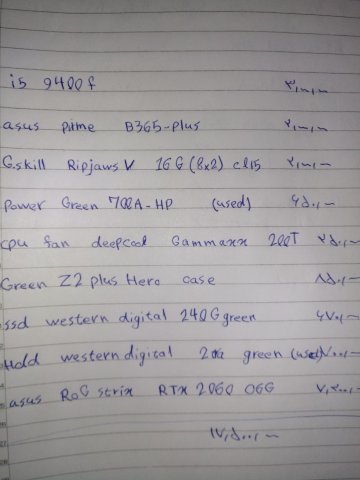 i5 9400f ۳,۰۰۰,۰۰۰
asus prime B365-plus ۲,۰۰۰,۰۰۰
G.skill Ripjaws V 16G (8x2) cl15 ۲,۰۰۰,۰۰۰
Power Green 700A-HP (used) ۶۵۰,۰۰۰
cpu fan deepcool Gammaxx 200T ۲۵۰,۰۰۰
Green Z2 plus Hero case ۸۵۰,۰۰۰
ssd western digital 240G green ۶۷۰,۰۰۰
Hdd western digital green (used)
asus RoG strix RTX 2060 O6G ۷,۳۰۰,۰۰۰
۱۷,۵۰۰,۰۰۰